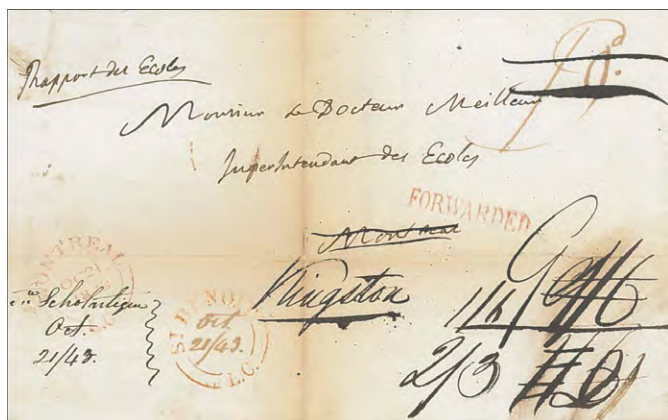 Rapport des Ecoles
Monsieur Le Docteur Meilleur
Surintendant des Ecoles
FORWARDED
Montreal
Kingston
MONTREAL
Scholastique
Oct.
21/43.
Oct.
21/43
L.C.
1/6
2/3